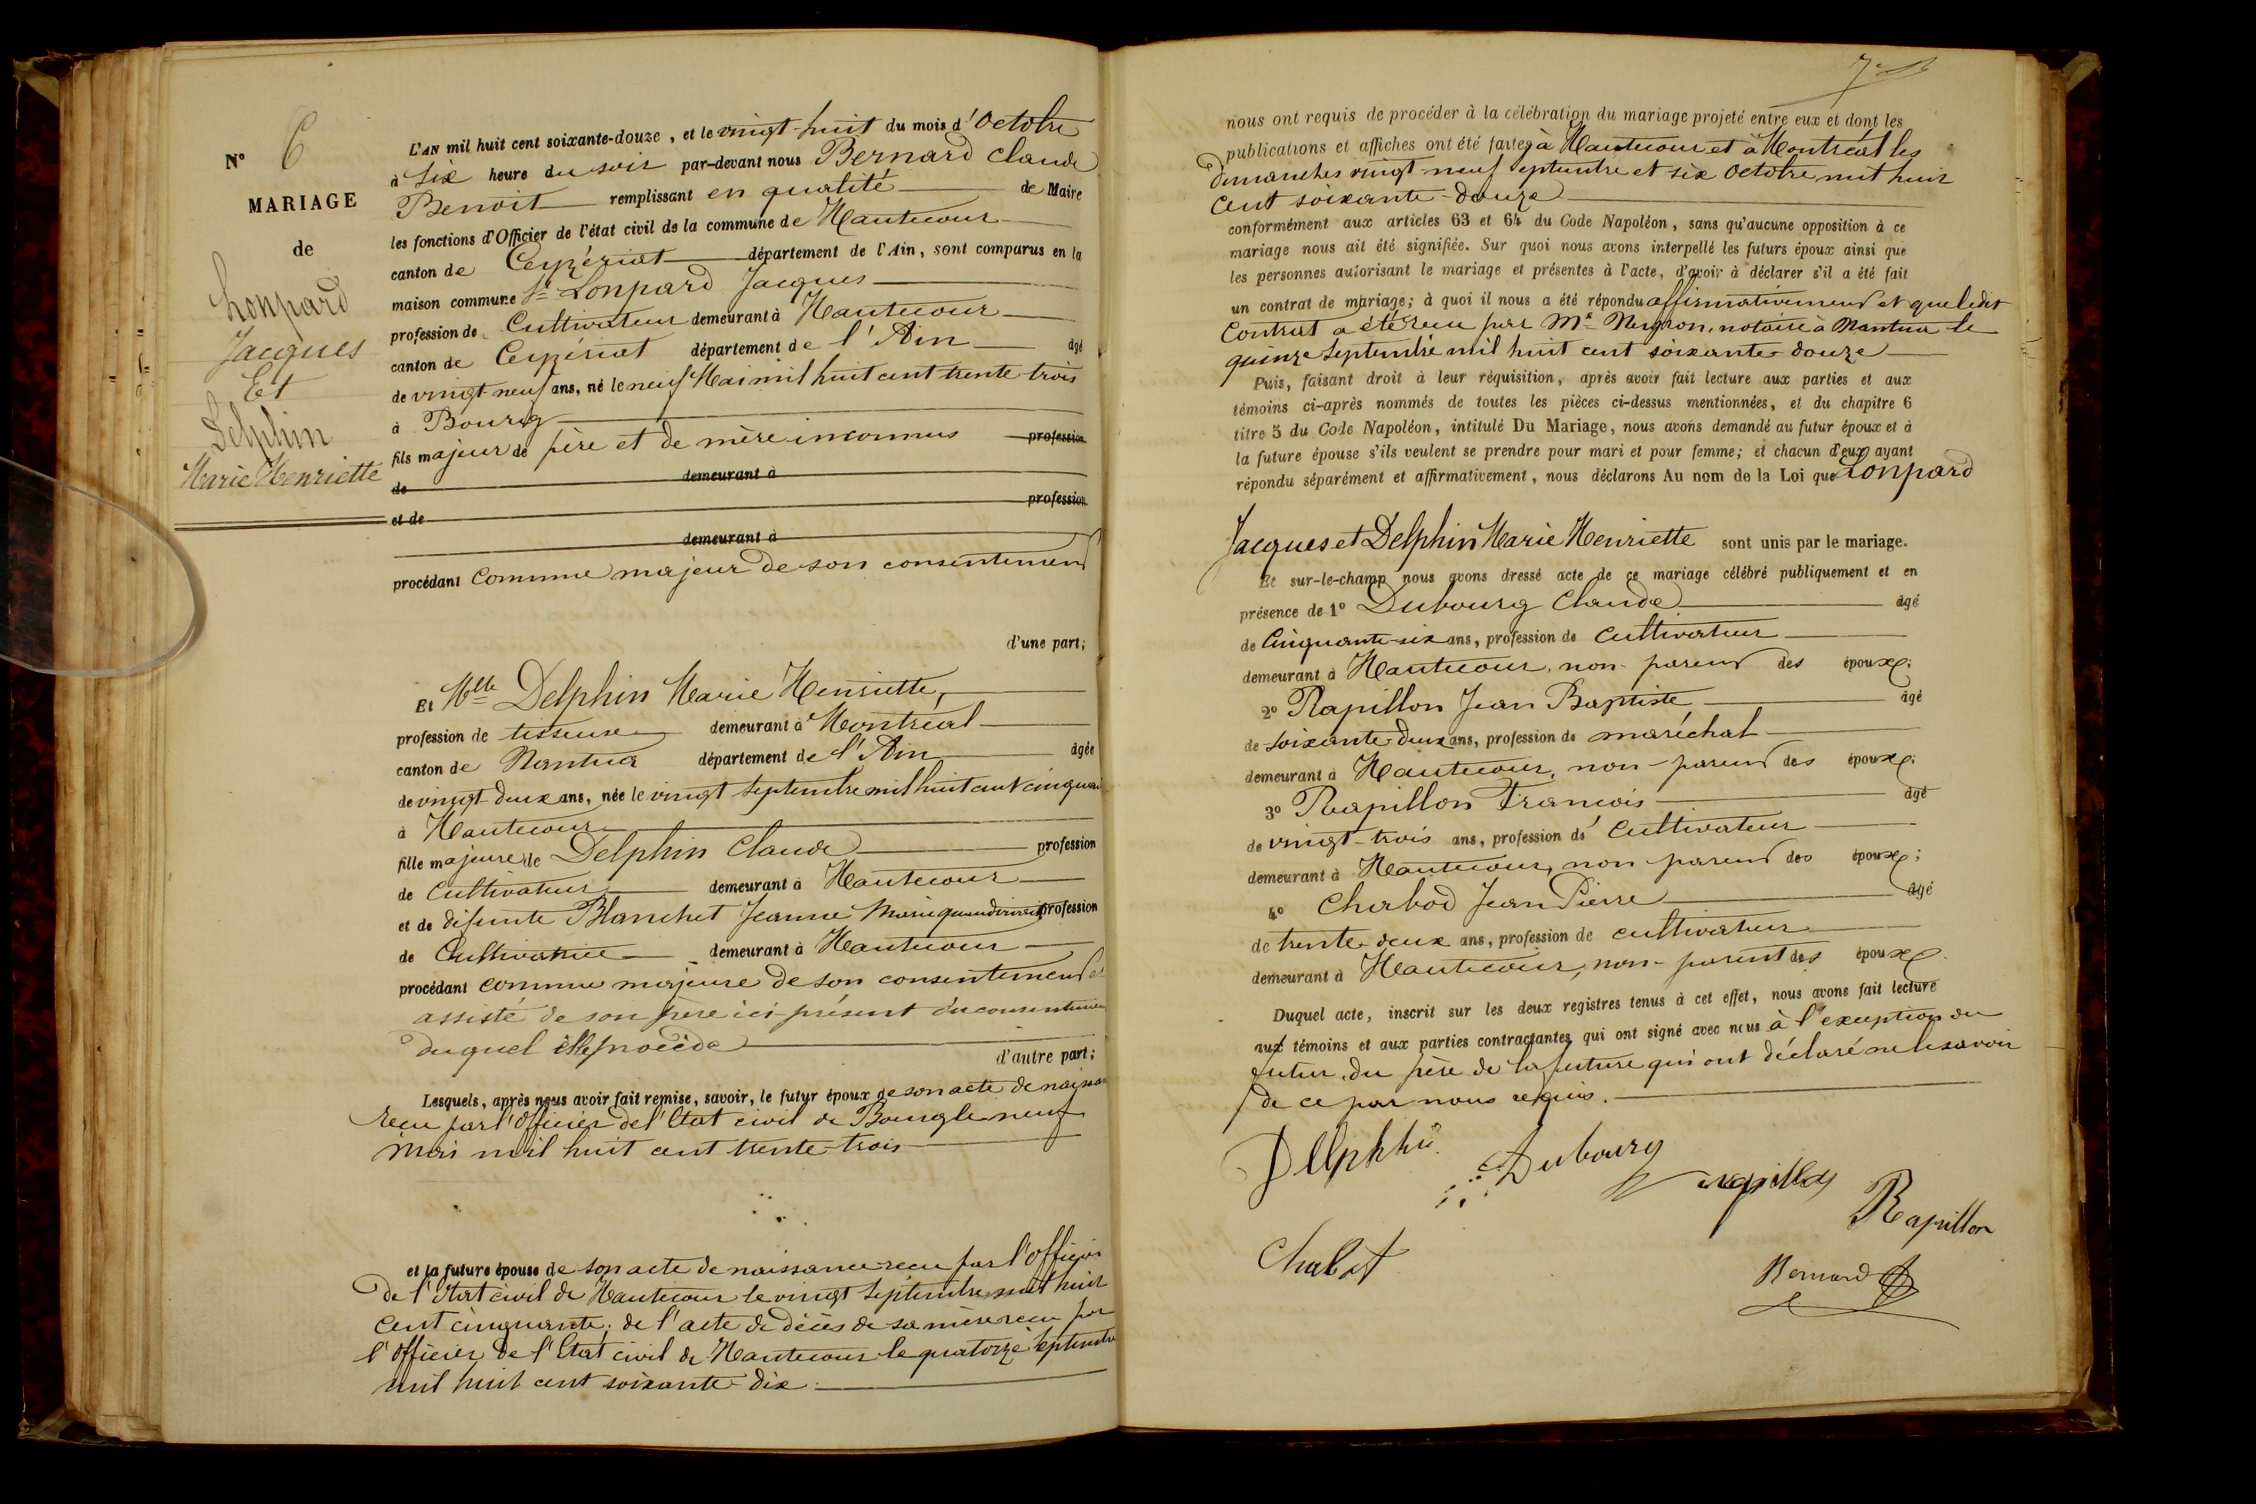 N° 6
MARIAGE
de
Lonpard
Jacques
Et
Delphin
Marie Henriette
L'AN mil huit cent soixante-douze, et le vingt-huit du mois d'Octobre
à six heure du soir par-devant nous Bernard Claude
Benoit remplissant en qualité de Maire
les fonctions d'Officier de l'état civil de la commune de Hautecour
canton de Ceyzériat département de l'Ain, sont comparus en la
maison commune Sr Lonpard Jacques
profession de Cultivateur demeurant à Hautecour
canton de Ceyzériat département de l'Ain âgé
de vingt neuf ans, né le neuf Mai mil huit cent trente trois
à Bourg
fils majeur de père et de mère inconnus profession
de demeurant à
et de profession
demeurant à
procédant comme majeur de son consentement
d'une part;
Et Mlle Delphin Marie Henriette,
profession de tisseuse demeurant à Montréal
canton de Nantua département de l'Ain âgée
de vingt deux ans, née le vingt Septembre mil huit cent cinquante
à Hautecour
fille majeure de Delphin Claude profession
de Cultivateur demeurant à Hautecour
et de défunte Blanchet Jeanne Marie quand vivait profession
de Cultivatrice demeurant à Hautecour
procédant comme majeure de son consentement et
assisté de son père ici présent du consentement
duquel elle procède
d'autre part;
Lesquels, après nous avoir fait remise, savoir, le futur époux de son acte de naissance
reçu par l'Officier de l'Etat civil de Bourg le neuf
Mai mil huit cent trente-trois
et la future épouse de son acte de naissance reçu par l'Officier
de l'Etat civil de Hautecour le vingt Septembre mil huit
cent cinquante; de l'acte de décès de sa mère reçu par
l'Officier de l'Etat civil de Hautecour le quatorze Septembre
mil huit cent soixante-dix.
7
nous ont requis de procéder à la célébration du mariage projeté entre eux et dont les
publications et affiches ont été faites à Hautecour et à Montréal les
dimanches vingt-neuf Septembre et six Octobre mil huit
cent soixante-douze
conformément aux articles 63 et 64 du Code Napoléon, sans qu'aucune opposition à ce
mariage nous ait été signifiée. Sur quoi nous avons interpellé les futurs époux ainsi que
les personnes autorisant le mariage et présentes à l'acte, d'avoir à déclarer s'il a été fait
un contrat de mariage; à quoi il nous a été répondu affirmativement et que ledit
Contrat a été reçu par Me notaire à Nantua le
quinze Septembre mil huit cent soixante-douze
Puis, faisant droit à leur réquisition, après avoir fait lecture aux parties et aux
témoins ci-après nommés de toutes les pièces ci-dessus mentionnées, et du chapitre 6
titre 5 du Code Napoléon, intitulé Du Mariage, nous avons demandé au futur époux et à
la future épouse s'ils veulent se prendre pour mari et pour femme; et chacun d'eux ayant
répondu séparément et affirmativement, nous déclarons Au nom de la Loi que Lonpard
Jacques et Delphin Marie Henriette sont unis par le mariage.
Et sur-le-champ nous avons dressé acte de ce mariage célébré publiquement et en
présence de 1° Dubourg Claude âgé
de Cinquante-six ans, profession de Cultivateur
demeurant à Hautecour, non-parent des époux;
2° Rapillon Jean Baptiste âgé
de soixante-deux ans, profession de maréchal
demeurant à Hautecour, non-parent des époux;
3° Rapillon François âgé
de vingt-trois ans, profession de Cultivateur
demeurant à Hautecour, non-parent des époux;
4° Chabod Jean Pierre âgé
de trente-deux ans, profession de cultivateur
demeurant à Hautecour, non-parent des époux.
Duquel acte, inscrit sur les deux registres tenus à cet effet, nous avons fait lecture
aux témoins et aux parties contractantes qui ont signé avec nous à l'exception du
futur, du père de la future qui ont déclaré ne le savoir
de ce par nous requis.
Dubourg
Rapillon
Bernard